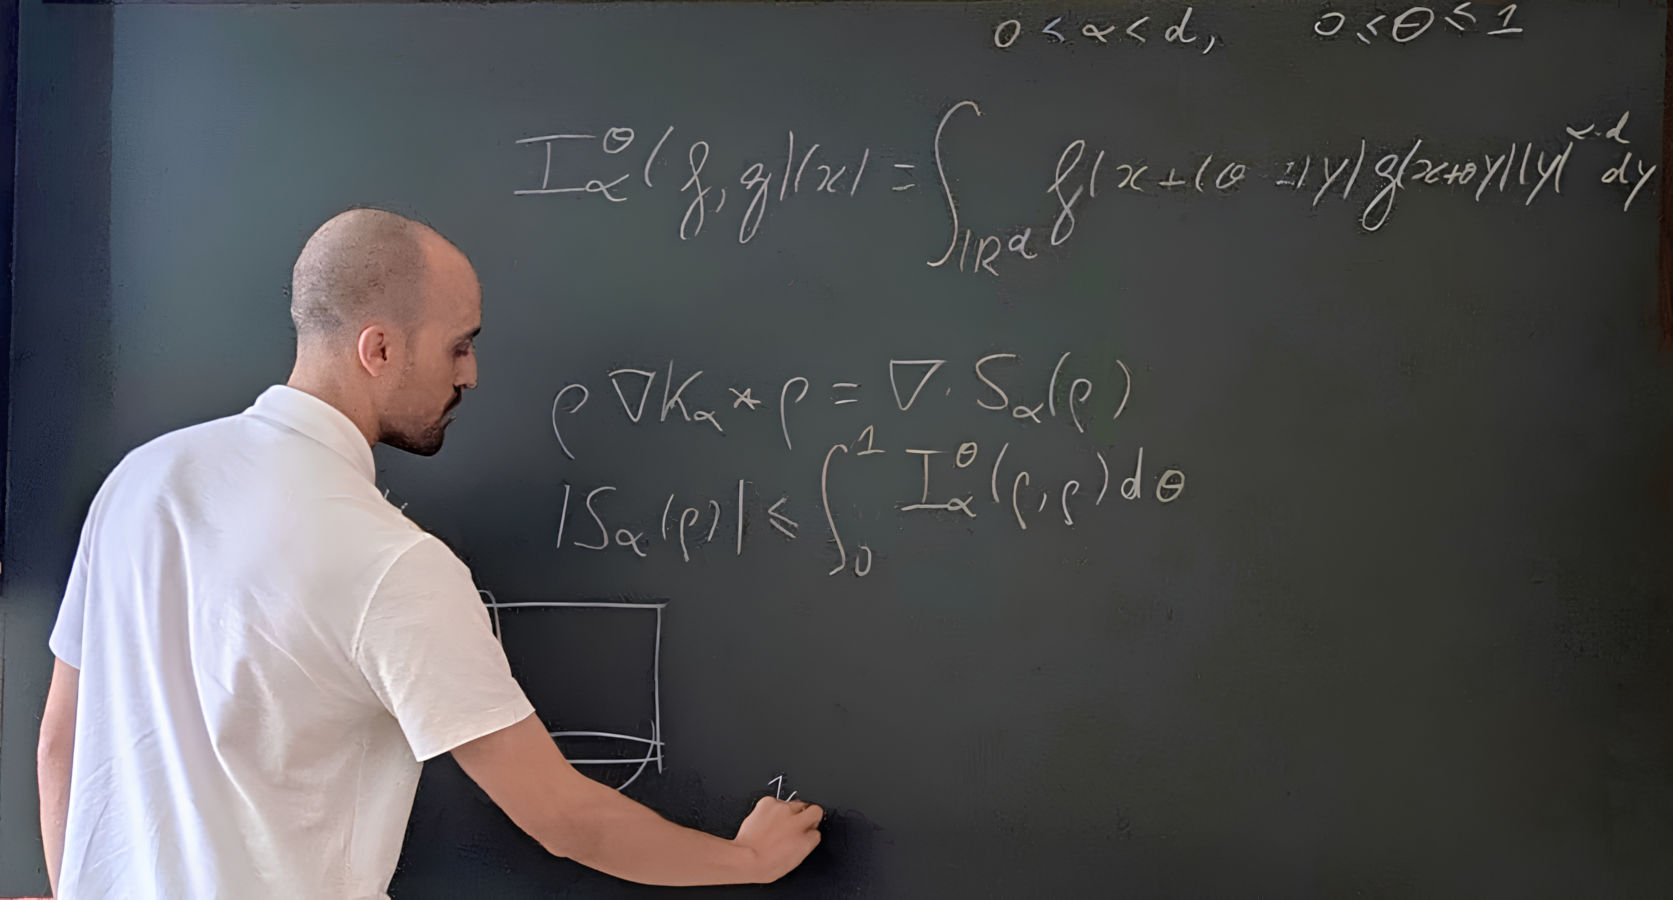 0 < α < d, 0 ≤ θ ≤ 1
I_α^θ(f, g)(x) = ∫_{ℝ^d} f(x+(θ-1)y) g(x+θy)|y|^{α-d} dy
ρ∇K_α * ρ = ∇·S_α(ρ)
|S_α(ρ)| ≤ ∫_0^1 I_α^θ(ρ,ρ)dθ
1